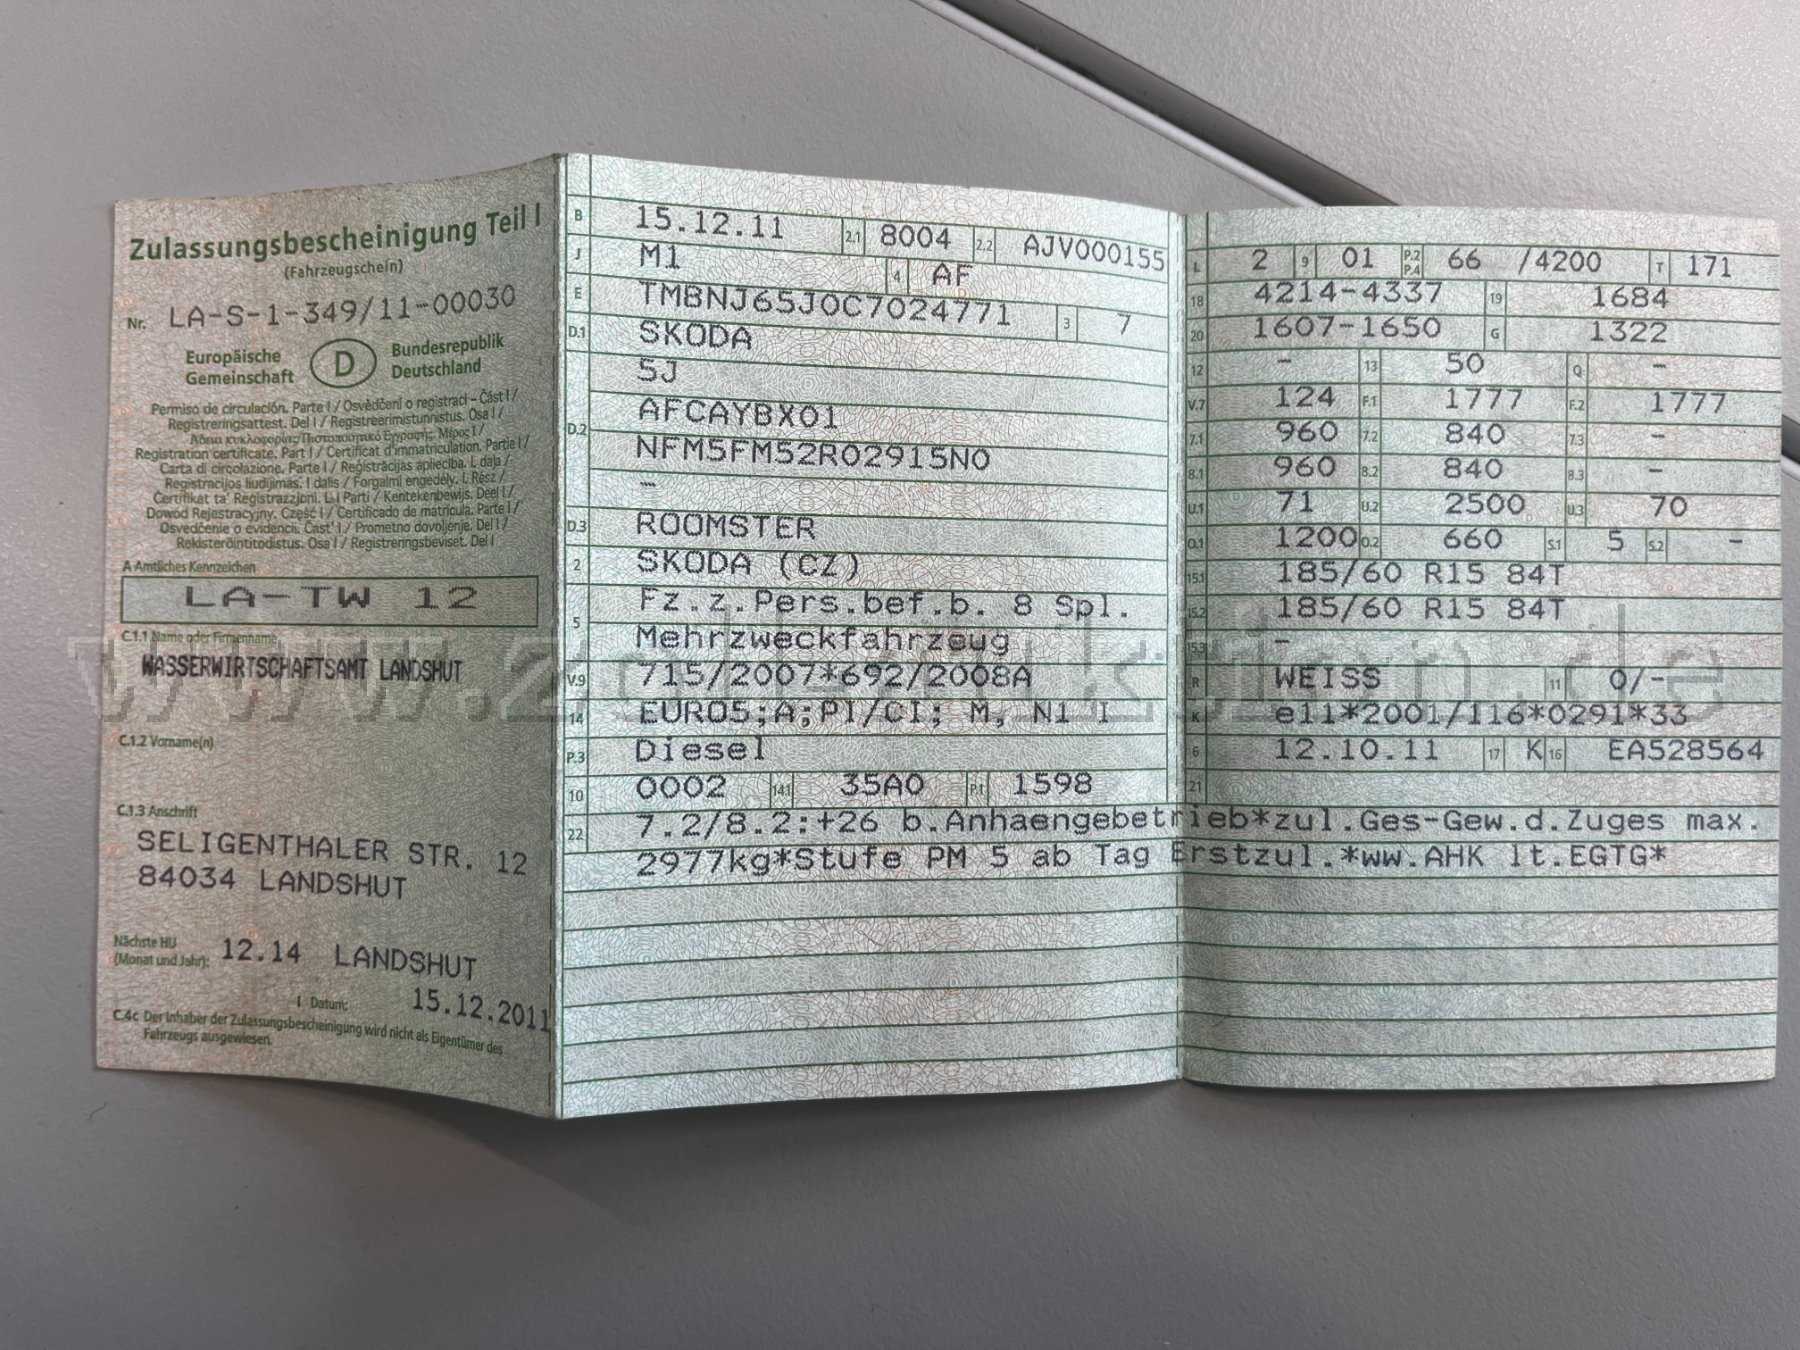 Zulassungsbescheinigung Teil I
(Fahrzeugschein)
Nr. LA-S-1-349/11-00030
Europäische Gemeinschaft D Bundesrepublik Deutschland
Permiso de circulación. Parte I / Osvědčení o registraci - Část I /
Registreringsattest. Del I / Registreerimistunnistus. Osa I /
Άδεια κυκλοφορίας/Πιστοποιητικό Εγγραφής. Μέρος I /
Registration certificate. Part I / Certificat d'immatriculation. Partie I /
Carta di circolazione. Parte I / Reģistrācijas apliecība. I. daļa /
Registracijos liudijimas. I dalis / Forgalmi engedély. I. Rész /
Ċertifikat ta' Reġistrazzjoni. L-I Parti / Kentekenbewijs. Deel I /
Dowód Rejestracyjny. Część I / Certificado de matrícula. Parte I /
Osvedčenie o evidencii. Časť I / Prometno dovoljenje. Del I /
Rekisteröintitodistus. Osa I / Registreringsbeviset. Del I
A Amtliches Kennzeichen
LA-TW 12
C.1.1 Name oder Firmenname
WASSERWIRTSCHAFTSAMT LANDSHUT
C.1.2 Vorname(n)
C.1.3 Anschrift
SELIGENTHALER STR. 12
84034 LANDSHUT
Nächste HU
(Monat und Jahr): 12.14 LANDSHUT
I Datum: 15.12.2011
C.4c Der Inhaber der Zulassungsbescheinigung wird nicht als Eigentümer des
Fahrzeugs ausgewiesen.
B 15.12.11 2.1 8004 2.2 AJV000155
J M1 4 AF
E TMBNJ65J0C7024771 3 7
D.1 SKODA
5J
D.2 AFCAYBX01
NFM5FM52R02915N0
-
D.3 ROOMSTER
2 SKODA (CZ)
5 Fz.z.Pers.bef.b. 8 Spl.
Mehrzweckfahrzeug
V.9 715/2007*692/2008A
14 EURO5;A;PI/CI; M, N1 I
P.3 Diesel
10 0002 14.1 35A0 P.1 1598
L 2 9 01 P.2 P.4 66 /4200 T 171
18 4214-4337 19 1684
20 1607-1650 G 1322
12 - 13 50 Q -
V.7 124 F.1 1777 F.2 1777
7.1 960 7.2 840 7.3 -
8.1 960 8.2 840 8.3 -
U.1 71 U.2 2500 U.3 70
O.1 1200 O.2 660 S.1 5 S.2 -
15.1 185/60 R15 84T
15.2 185/60 R15 84T
15.3 -
R WEISS 11 0/-
K e11*2001/116*0291*33
6 12.10.11 17 K 16 EA528564
21
22 7.2/8.2:+26 b.Anhaengebetrieb*zul.Ges-Gew.d.Zuges max.
2977kg*Stufe PM 5 ab Tag Erstzul.*ww.AHK lt.EGTG*